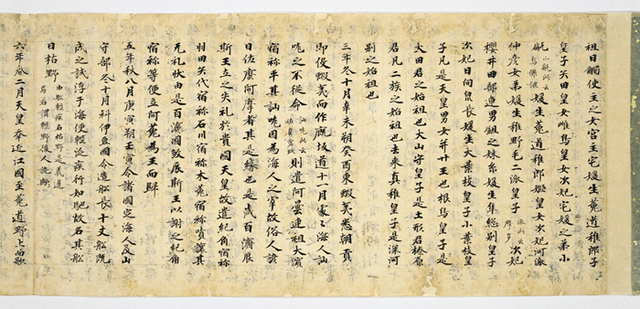 祖日觸使主之女宮主宅媛生菟道稚郎子
皇子矢田皇女雌鳥皇女次妃宅媛之弟小
媛生菟道稚郎姬皇女次妃河派
仲彥女弟媛生稚野毛二派皇子次妃
櫻井田部連男鉏之妹糸媛生隼總別皇子
次妃日向泉長媛生大葉枝皇子小葉枝皇
子凡是天皇男女并廿王也根鳥皇子是
大田君之始祖也大山守皇子是土形君榛原
君凡二族之始祖也去来真稚皇子是深河
別之始祖也
三年冬十月辛未朔癸酉東蝦夷悉朝貢
即役蝦夷而作厩坂道十一月處々海人訕
哤之不從命則遣阿曇連祖大濱
宿祢平其訕哤因為海人之宰故俗人諺
曰佐麼阿摩者其是緣也是歳百濟辰
斯王立之失礼於貴國天皇故遣紀角宿祢
羽田矢代宿祢石川宿祢木菟宿祢嘖讓其
无礼狀由是百濟國敦辰斯王以謝之紀角
宿祢等便立阿花為王而歸
五年秋八月庚寅朔壬寅令諸國定海人及山
守部冬十月科伊豆國令造船長十丈船既
成之試浮于海便輕泛疾行如馳故名其船
曰枯野由船輕疾名枯野是義違焉若謂輕野後人訛歟
六年春二月天皇幸近江國至菟道野上而歌